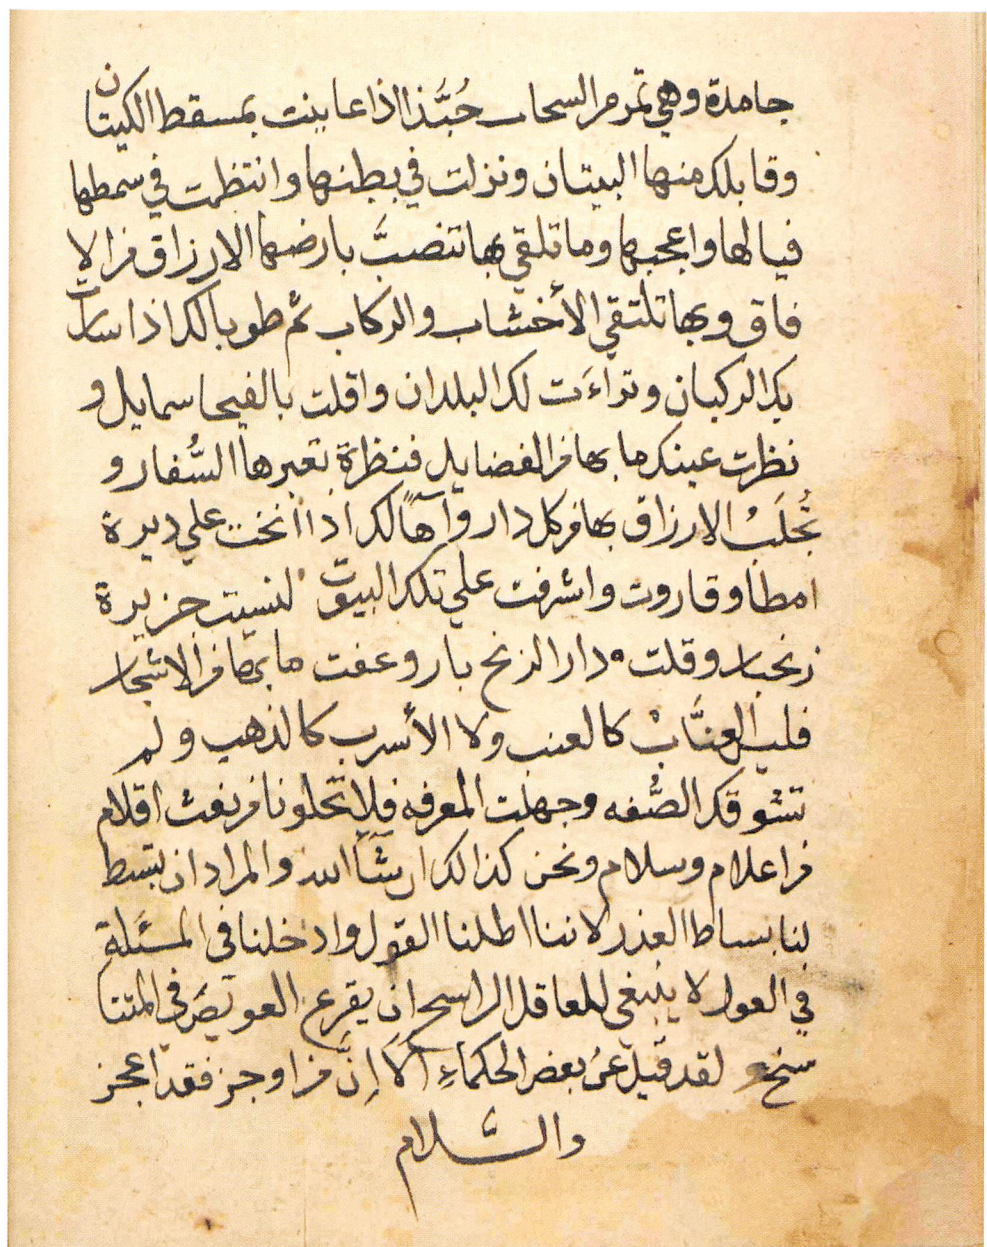 جامدة وهي تمر مر السحاب حُبَّذا اذا عاينت بمسقط الكيتان
وقابلك منها البيتان ونزلت في بطنها وانتظمت في سمطها
فيا لها واعجبها وما تلقي بها تنصبَّ بارضها الارزاق من الا
فاق وبها تلتقي الأخشاب والركاب ثم طوبا لك اذا سارت
بك الركبان وتراءَت لك البلدان واقلت بالفيحا سمايل و
نظرت عينك ما بها من الفضايل فنظرة تعبرها السُّفار و
تُجلَبُ الارزاق بها من كل دار وآهاً لك اذا أنخت علي ديرة
امطا وقاروت واشرفت علي تلك البيوت لنسيت جزيرة
زنجبار وقلت دار الزنج بار وعفت ما بها من الاشجار
فليس العنَّابْ كالعنب ولا الأسرب كالذهب ولم
تشوقك الصُّفه وجهلت المعرفه فلا تخلونا من نفث اقلام
من اعلام وسلام ونحن كذالك ان شآ الله والمراد ان تبسط
لنا بساط العذر لاننا اطلنا القول وادخلنا في المسَئلةِ
في العول لا ينبغي للعاقل الراسخ ان يقرع العويصَ في المتنا
سخ لقد قيل عن بعض الحكماءِ ألا إنَّ من اوجز فقد اعجز
والسَّلام